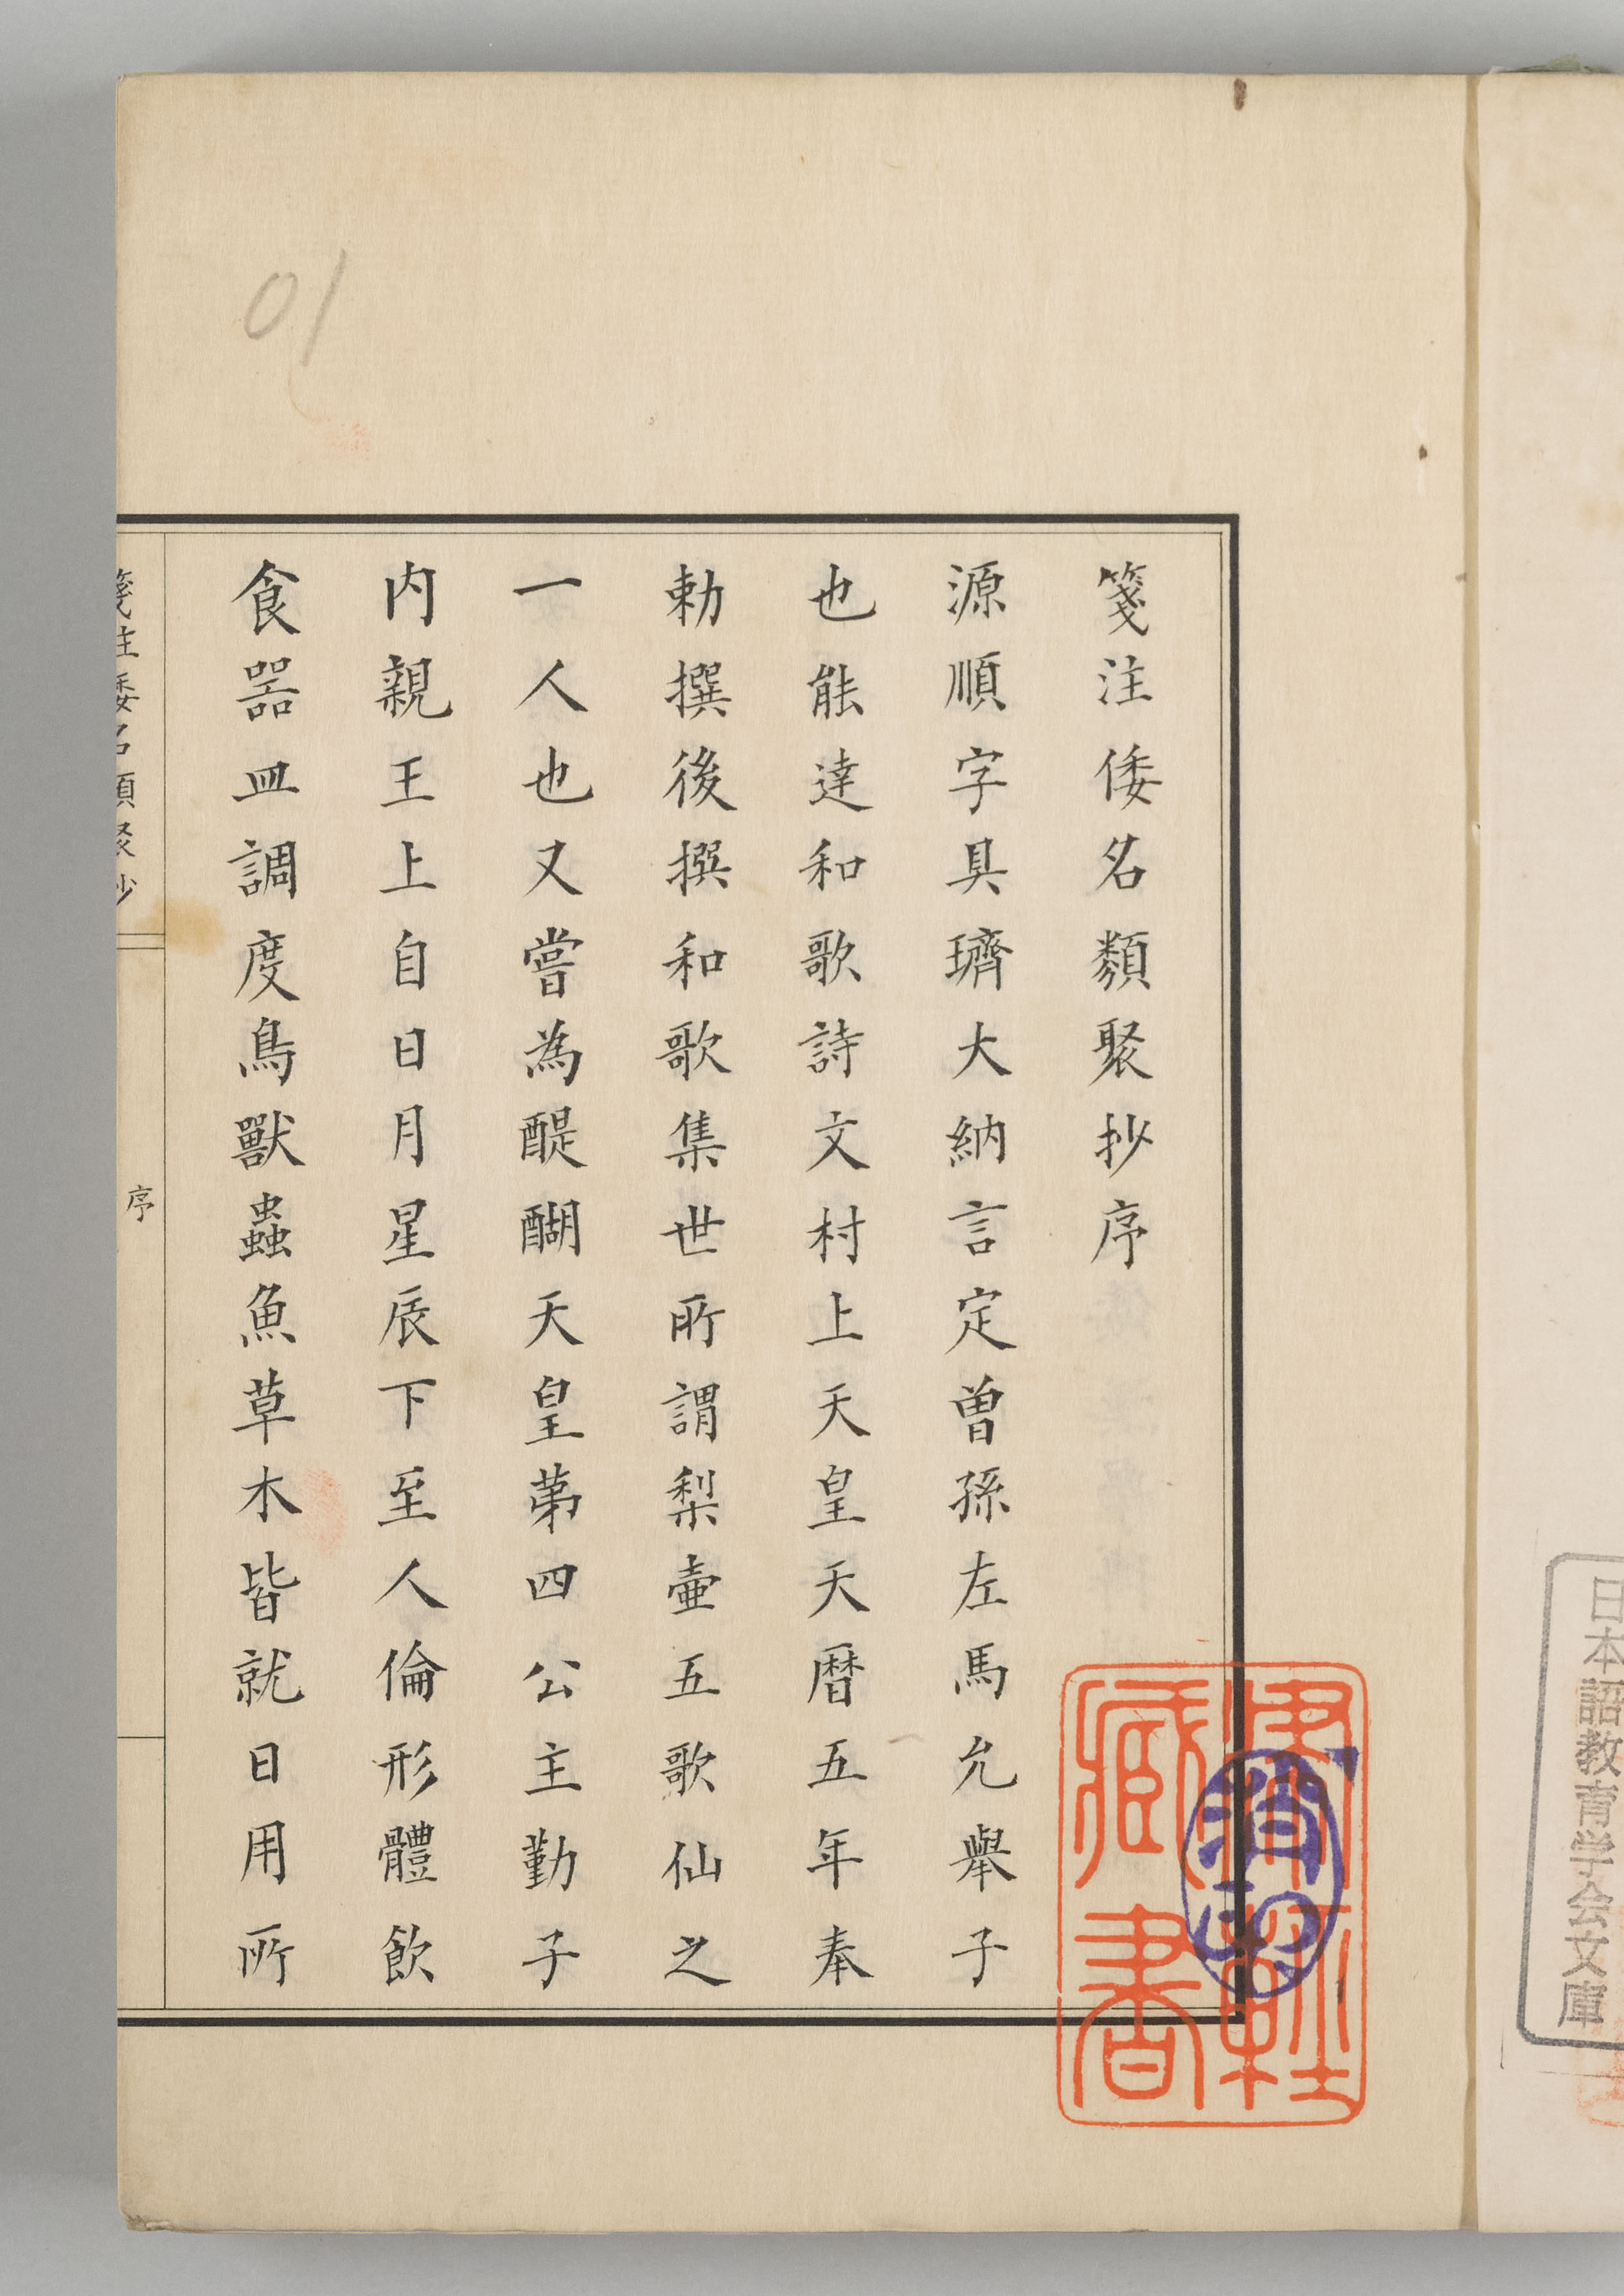 箋注倭名類聚抄序
源順字具瓚大納言定曽孫左馬允舉子
也能達和歌詩文村上天皇天暦五年奉
勅撰後撰和歌集世所謂梨壷五歌仙之
一人也又嘗為醍醐天皇第四公主勤子
内親王上自日月星辰下至人倫形體飲
食器皿調度鳥獸蟲魚草木皆就日用所
箋注倭名類聚抄
序
01
藏書
消
日本語教育学会文庫